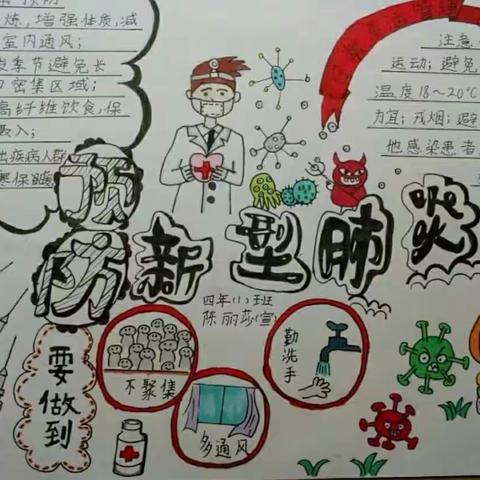 炼,增强体质,减
室内通风;
季节避免长
密集区域;
高纤维饮食,保
入;
出疾病人群
寒保暖
注意
运动;避免
温度18~20℃
为宜;戒烟;避
他感染患者
预防新型肺炎
四年(1)班
陈丽莎(宣)
要做到
不聚集
多通风
勤洗手